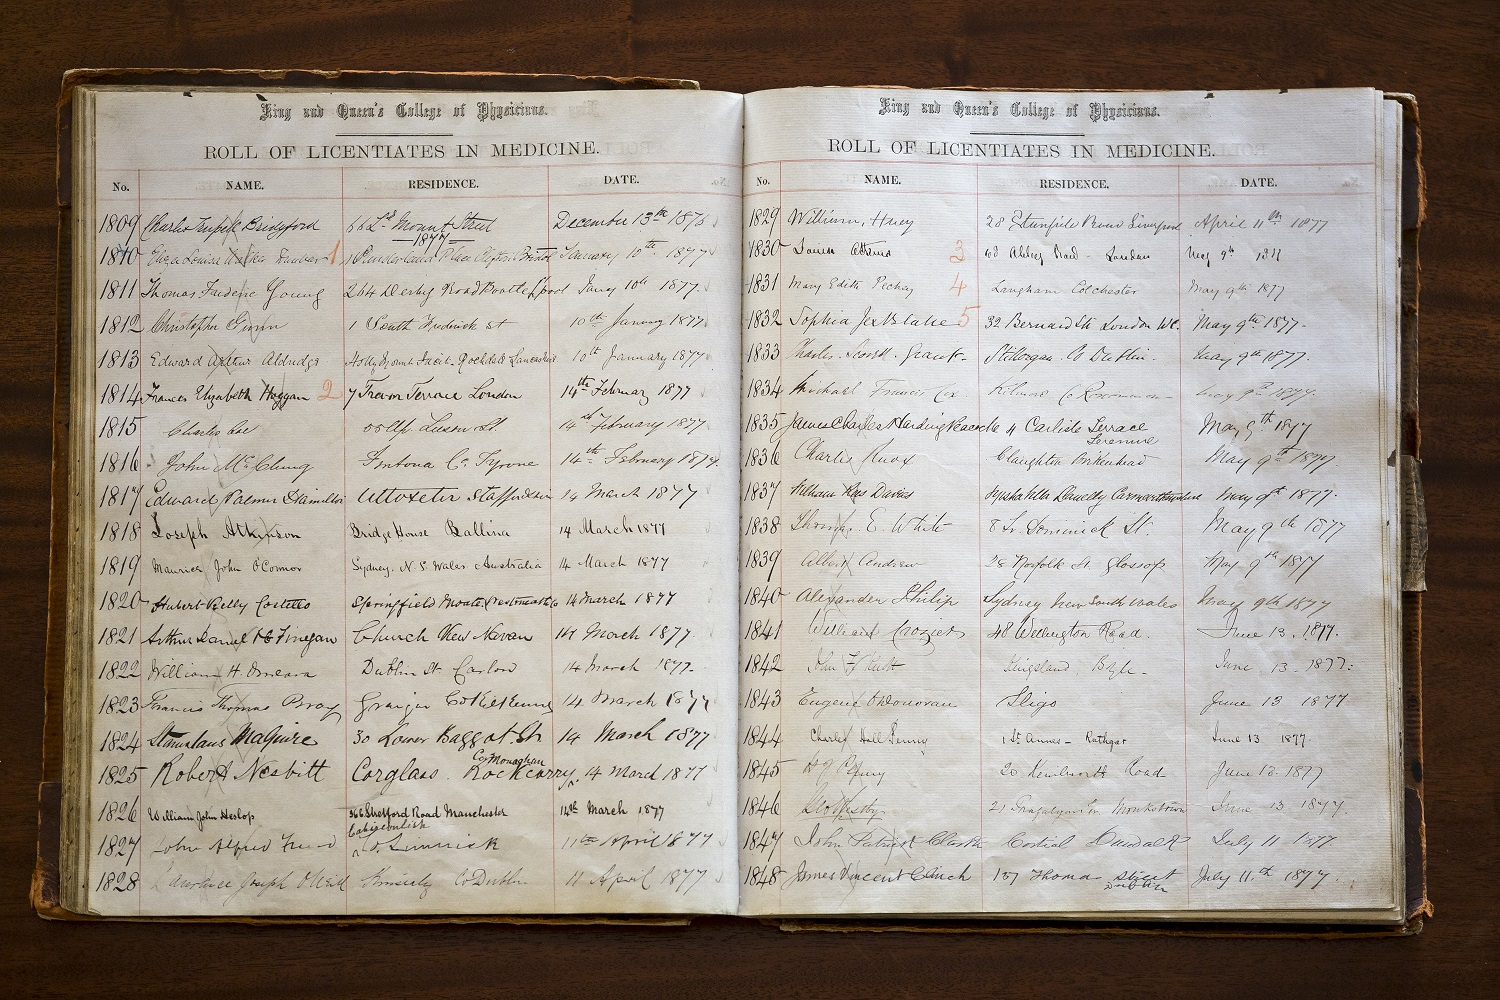 King and Queen's College of Physicians.
ROLL OF LICENTIATES IN MEDICINE.
No. NAME. RESIDENCE. DATE.
1809 Charles Bridgford 66 Lr Mount Street December 13th 1876
1877
1810 Eliza Louisa Walker Dunbar 1 Place Clifton Bristol January 10th 1877
1811 Thomas Frederic Young 264 Derby Road Bootle L'pool Jany 10th 1877.
1812 Christopher 1 South Frederick St 10th January 1877
1813 Edward Arthur Aldridge Rochdale Lancashire 10th January 1877
1814 Frances Elizabeth Hoggan 2 7 Trevor Terrace London 14th February 1877
1815 Charles Lee Leeson St. 14th February 1877
1816 John McClung Fintona Co. Tyrone 14th February 1877.
1817 Edward Palmer Hamilton Uttoxeter Staffordshire 14 March 1877
1818 Joseph Atkinson Bridge House Ballina 14 March 1877
1819 Maurice John O'Connor Sydney. N.S. Wales Australia 14 March 1877
1820 Hubert Kelly Costello Springfield Moate 14 March 1877
1821 Arthur Daniel Finegan Church View Navan 14 March 1877.
1822 William H. Omeara Dublin St. Carlow 14 March 1877.
1823 Francis Thomas Bray Co Kilkenny 14 March 1877
1824 Stanislaus MaGuire 30 Lower Baggot St 14 March 1877
1825 Robert Nesbitt Corglass. Rockcorry Co Monaghan 14 March 1877
1826 William John Heslop 366 Stretford Road Manchester 14th March 1877
1827 John Alfred Limerick 11th April 1877
1828 Joseph O'Neill Co Dublin 11 April 1877
King and Queen's College of Physicians.
ROLL OF LICENTIATES IN MEDICINE.
No. NAME. RESIDENCE. DATE.
1829 William, Harry 28 Road Liverpool April 11th 1877
1830 Louisa Atkins 3 Abbey Road - London May 9th 1877
1831 Mary Edith Pechey 4 Langham Colchester May 9th 1877
1832 Sophia Jex Blake 5 32 Bernard St London WC. May 9th 1877.
1833 Charles Scott Grant Stillorgan Co Dublin. May 9th 1877.
1834 Michael Francis Cox Kilmore Co Roscommon May 9th 1877.
1835 James Charles Harding Peacocke 4 Carlisle Terrace May 9th 1877
1836 Charles Knox Claughton Birkenhead May 9th 1877.
1837 William Rees Davies Carmarthenshire May 9th 1877.
1838 Thomas E. White 8 Lr Dominick St. May 9th 1877
1839 Albert Andrew 28 Norfolk St. Glossop May 9th 1877
1840 Alexander Philip Sydney New South Wales May 9th 1877
1841 William Crozier 48 Wellington Road. June 13. 1877.
1842 John Kingsland June 13 - 1877.
1843 Eugene O'Donovan Sligo June 13 1877
1844 Charles Hall Penny 1 St. Annes - Rathgar June 13 1877
1845 20 Kenilworth Road June 13 1877
1846 21 Monkstown June 13 1877
1847 John Patrick Clarke Dundalk July 11 1877
1848 James Vincent Clinch 157 Thomas Street Dublin July 11.th 1877.